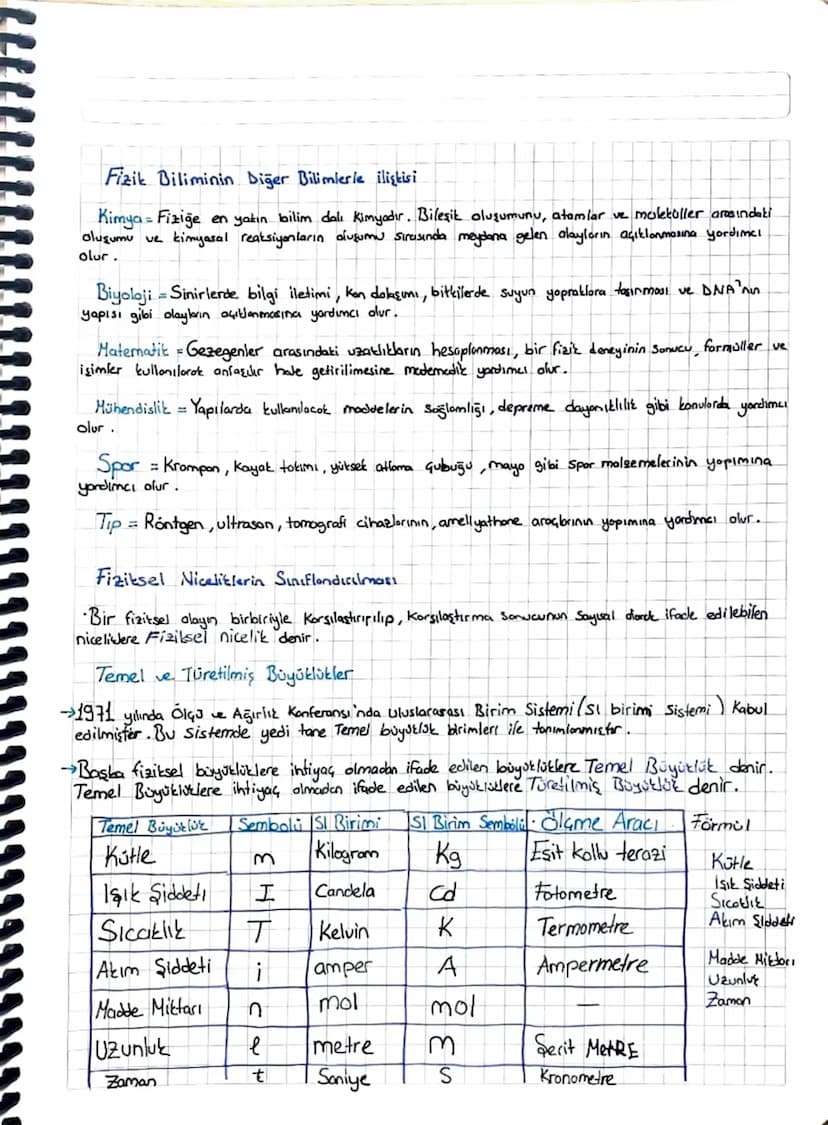 Fizik Biliminin Diğer Bilimlerle ilişkisi
Kimya = Fiziğe en yakın bilim dalı kimyadır. Bileşik oluşumunu, atomlar ve moleküller arasındaki
oluşumu ve kimyasal reaksiyonların oluşumu sırasında meydana gelen olayların açıklanmasına yardımcı
olur.
Biyoloji = Sinirlerde bilgi iletimi, kan dolaşımı, bitkilerde suyun yapraklara taşınması ve DNA'nın
yapısı gibi olayların açıklanmasına yardımcı olur.
Matematik = Gezegenler arasındaki uzaklıkların hesaplanması, bir fizik deneyinin sonucu, formüller ve
işimler kullanılarak anlaşılır hale getirilimesine mademadik yardımcı olur.
Mühendislik = Yapılarda kullanılacak maddelerin sağlamlığı, depreme dayanıklılık gibi konularda yardımcı
olur.
Spor = Krampon, kayak takımı, yüksek atlama çubuğu, mayo gibi spor malzemelerinin yapımına
yardımcı olur.
Tıp = Röntgen, ultrason, tomografi cihazlarının, amellyathane araçlarının yapımına yardımcı olur.
Fiziksel Niceliklerin Sınıflandırılması
· Bir fiziksel olayın birbiriyle karşılaştırıpılıp, karşılaştırma sonucunun sayısal olarak ifade edilebilen
niceliklere Fiziksel nicelik denir.
Temel ve Türetilmiş Büyüklükler
→ 1971 yılında Ölçü ve Ağırlık Konferansı'nda Uluslararası Birim Sistemi (SI birimi sistemi) Kabul
edilmiştir. Bu sistemde yedi tane Temel büyüklük birimleri ile tanımlanmıştır.
→ Başka fiziksel büyüklüklere ihtiyaç olmadan ifade edilen büyüklüklere Temel Büyüklük denir.
Temel Büyüklüklere ihtiyaç olmadan ifade edilen büyüklüklere Türetilmiş Büyüklük denir.
Temel Büyüklük Sembolü SI Birimi SI Birim Sembolü Ölçme Aracı Formül
Kütle m Kilogram Kg Eşit kollu terazi Kütle
Işık Şiddeti I Candela Cd Fotometre Işık Şiddeti
Sıcaklık T Kelvin K Termometre Sıcaklık
Akım Şiddeti i amper A Ampermetre Akım Şiddeti
Madde Miktarı n mol mol — Madde Miktarı
Uzunluk l metre m Şerit MetRE Uzunluk
Zaman t Saniye S Kronometre Zaman